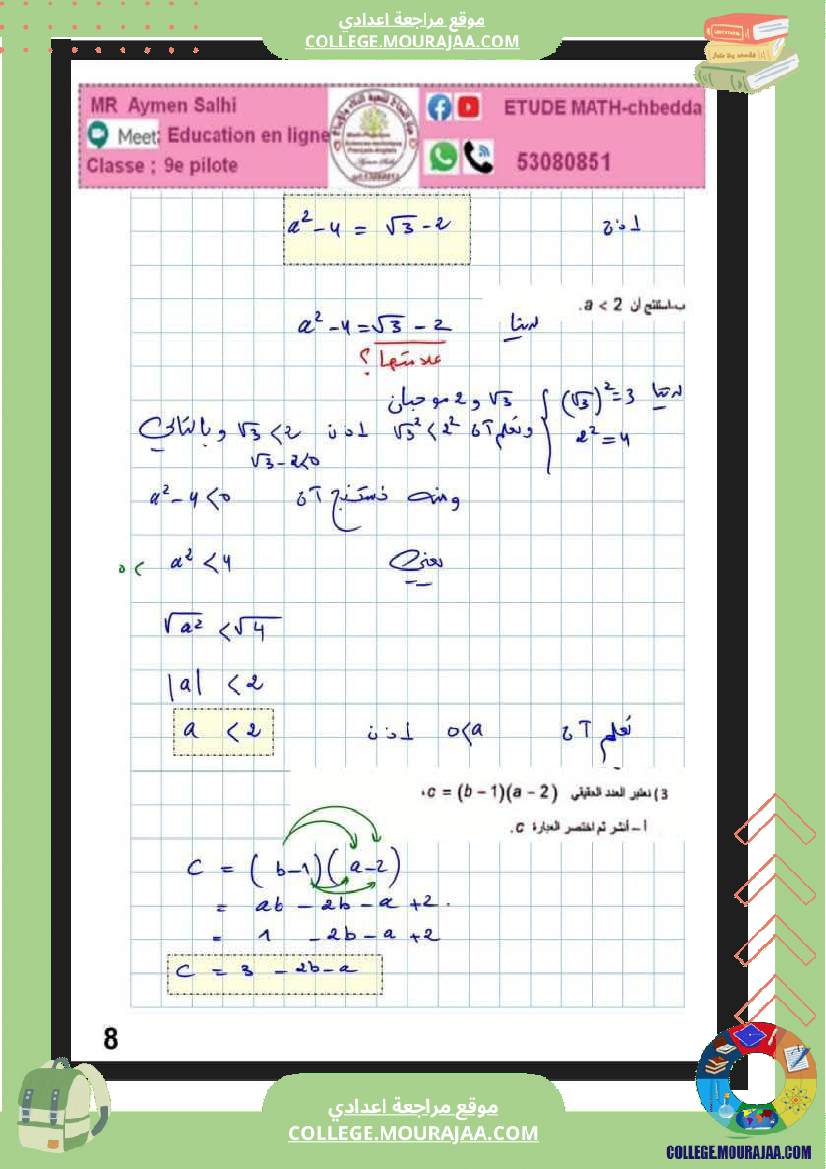 موقع مراجعة اعدادي
COLLEGE.MOURAJAA.COM
MR Aymen Salhi
Meet: Education en ligne
Classe : 9e pilote
ETUDE MATH-chbedda
53080851
اذن a² - 4 = √3 - 2
ب-استنتج أن a < 2.
لدينا a² - 4 = √3 - 2
علامتها ؟
لدينا (√3)² = 3
2² = 4
√3 و 2 موجبان
ونعلم أن √3² < 2² اذن √3 < 2 وبالتالي
√3 - 2 < 0
ومنه نستنتج أن a² - 4 < 0
يعني 0 < a² < 4
√a² < √4
|a| < 2
نعلم أن 0<a اذن a < 2
3) نعتبر العدد الحقيقي c = (b − 1)(a − 2) ،
أ – أنشر ثم اختصر العبارة c.
C = (b-1)(a-2)
= ab - 2b - a + 2.
= 1 - 2b - a + 2
C = 3 - 2b - a
8
موقع مراجعة اعدادي
COLLEGE.MOURAJAA.COM
COLLEGE.MOURAJAA.COM